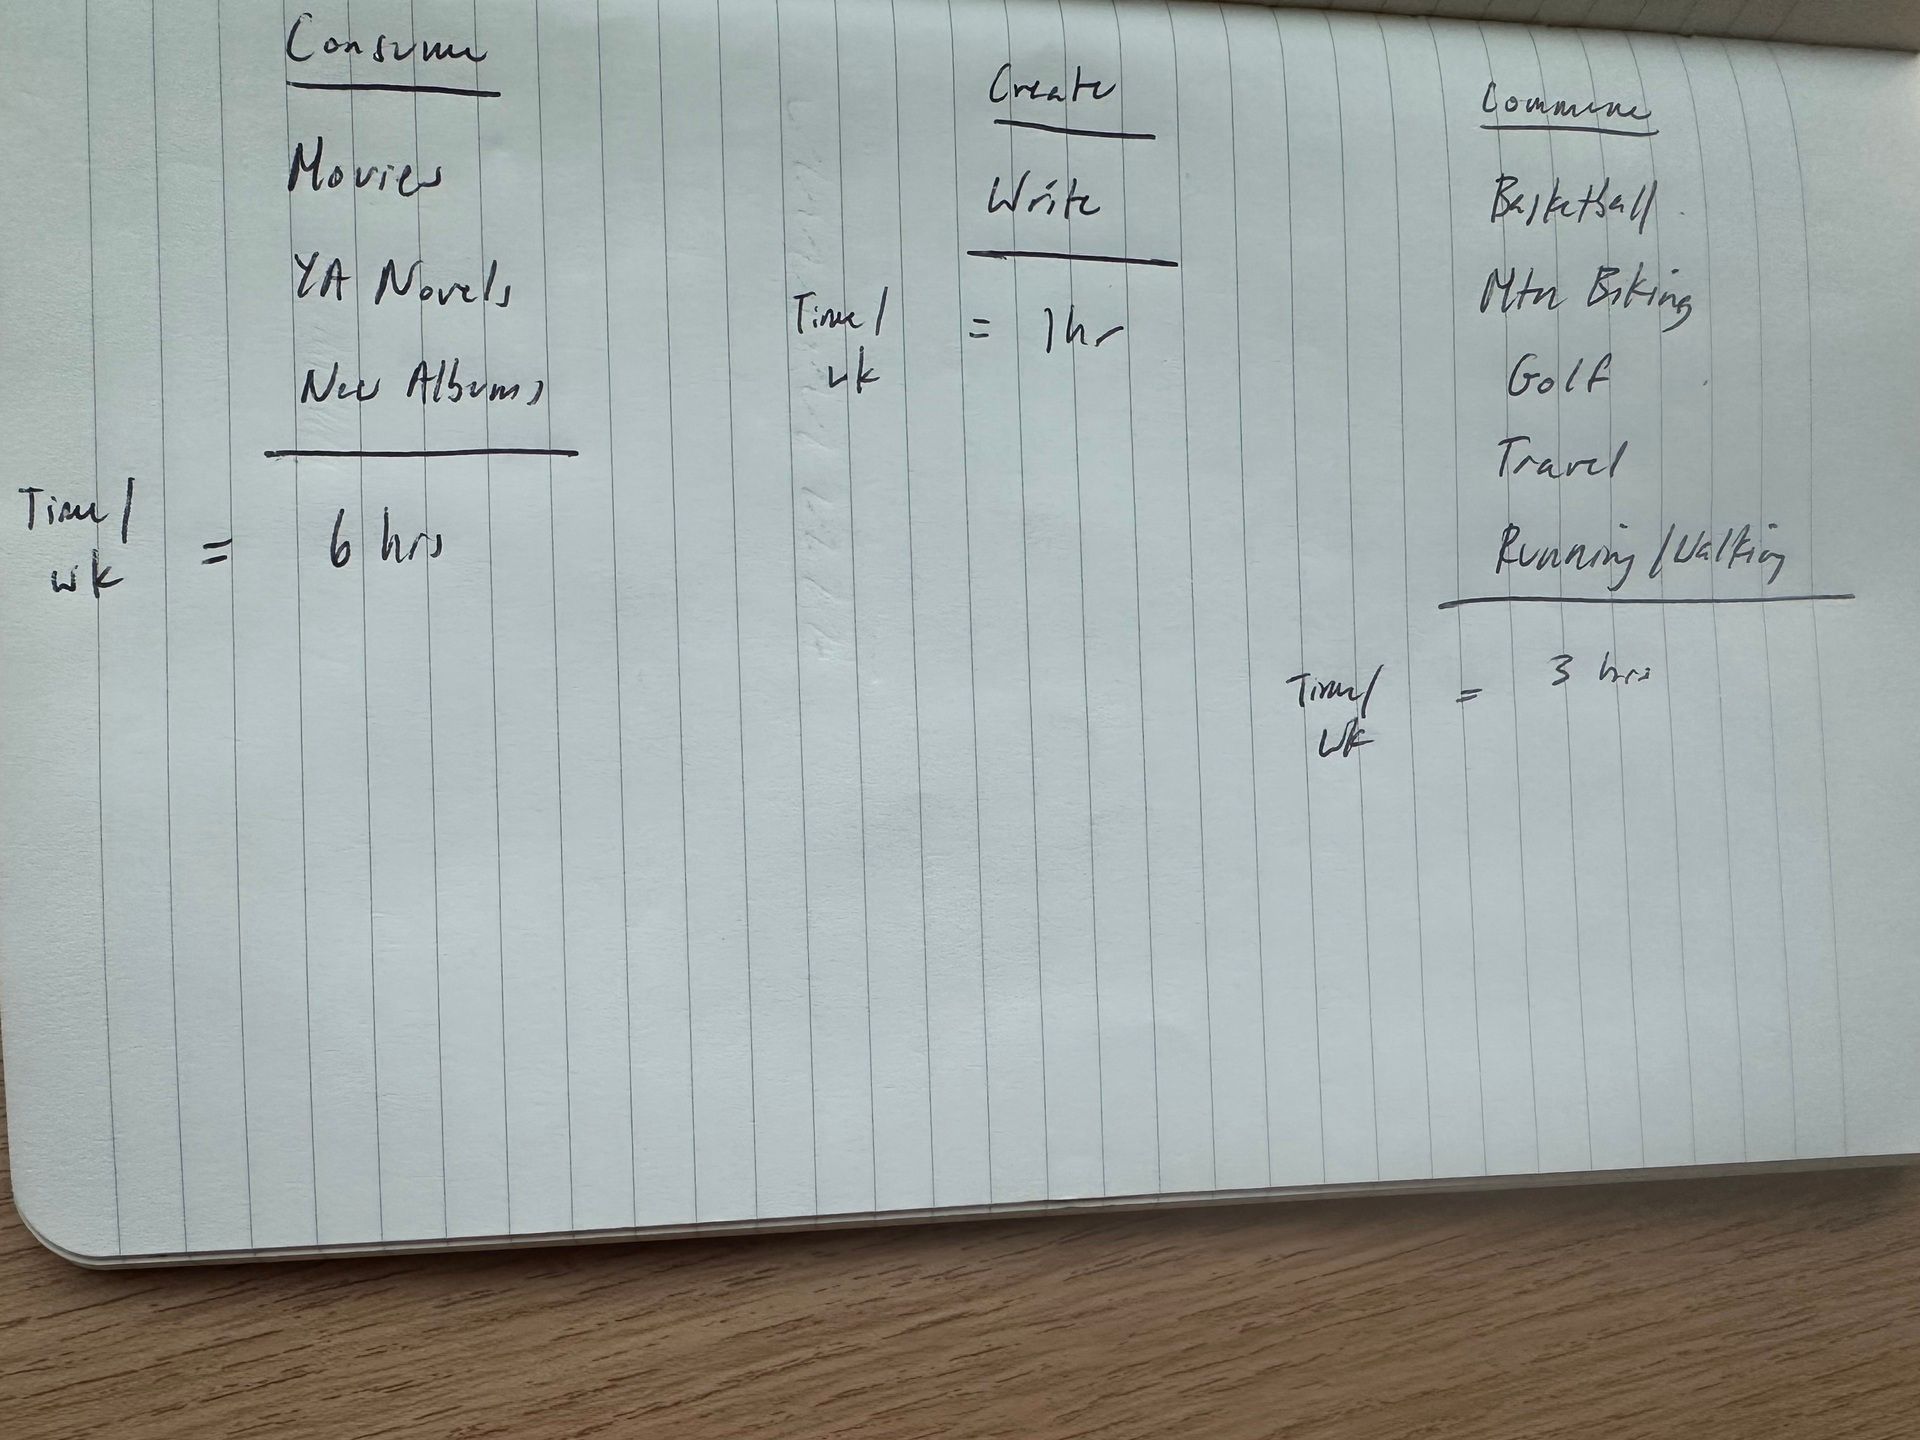 Consume
Movies
YA Novels
New Albums
Time/
wk
= 6 hrs
Create
Write
Time/
wk
= 1hr
Commune
Basketball
Mtn Biking
Golf
Travel
Running/Walking
Time/
wk
= 3 hrs